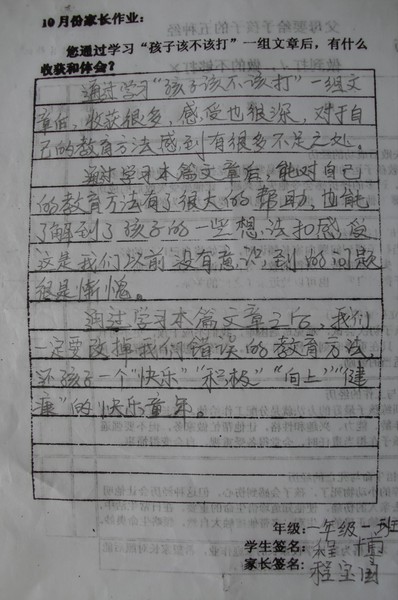 10月份家长作业：
您通过学习“孩子该不该打”一组文章后，有什么
收获和体会？
通过学习“孩子该不该打”一组文
章后，收获很多，感受也很深，对于自
己的教育方法感到有很多不足之处。
通过学习本篇文章后，能对自己
的教育方法有了很大的帮助，也能
了解到了孩子的一些想法和感受
这是我们以前没有意识到的问题
很是惭愧。
通过学习本篇文章之后，我们
一定要改掉我们错误的教育方法，
还孩子一个“快乐”“积极”“向上”“健
康”的快乐童年。
年级：一年级一班
学生签名：程博
家长签名：程宝国